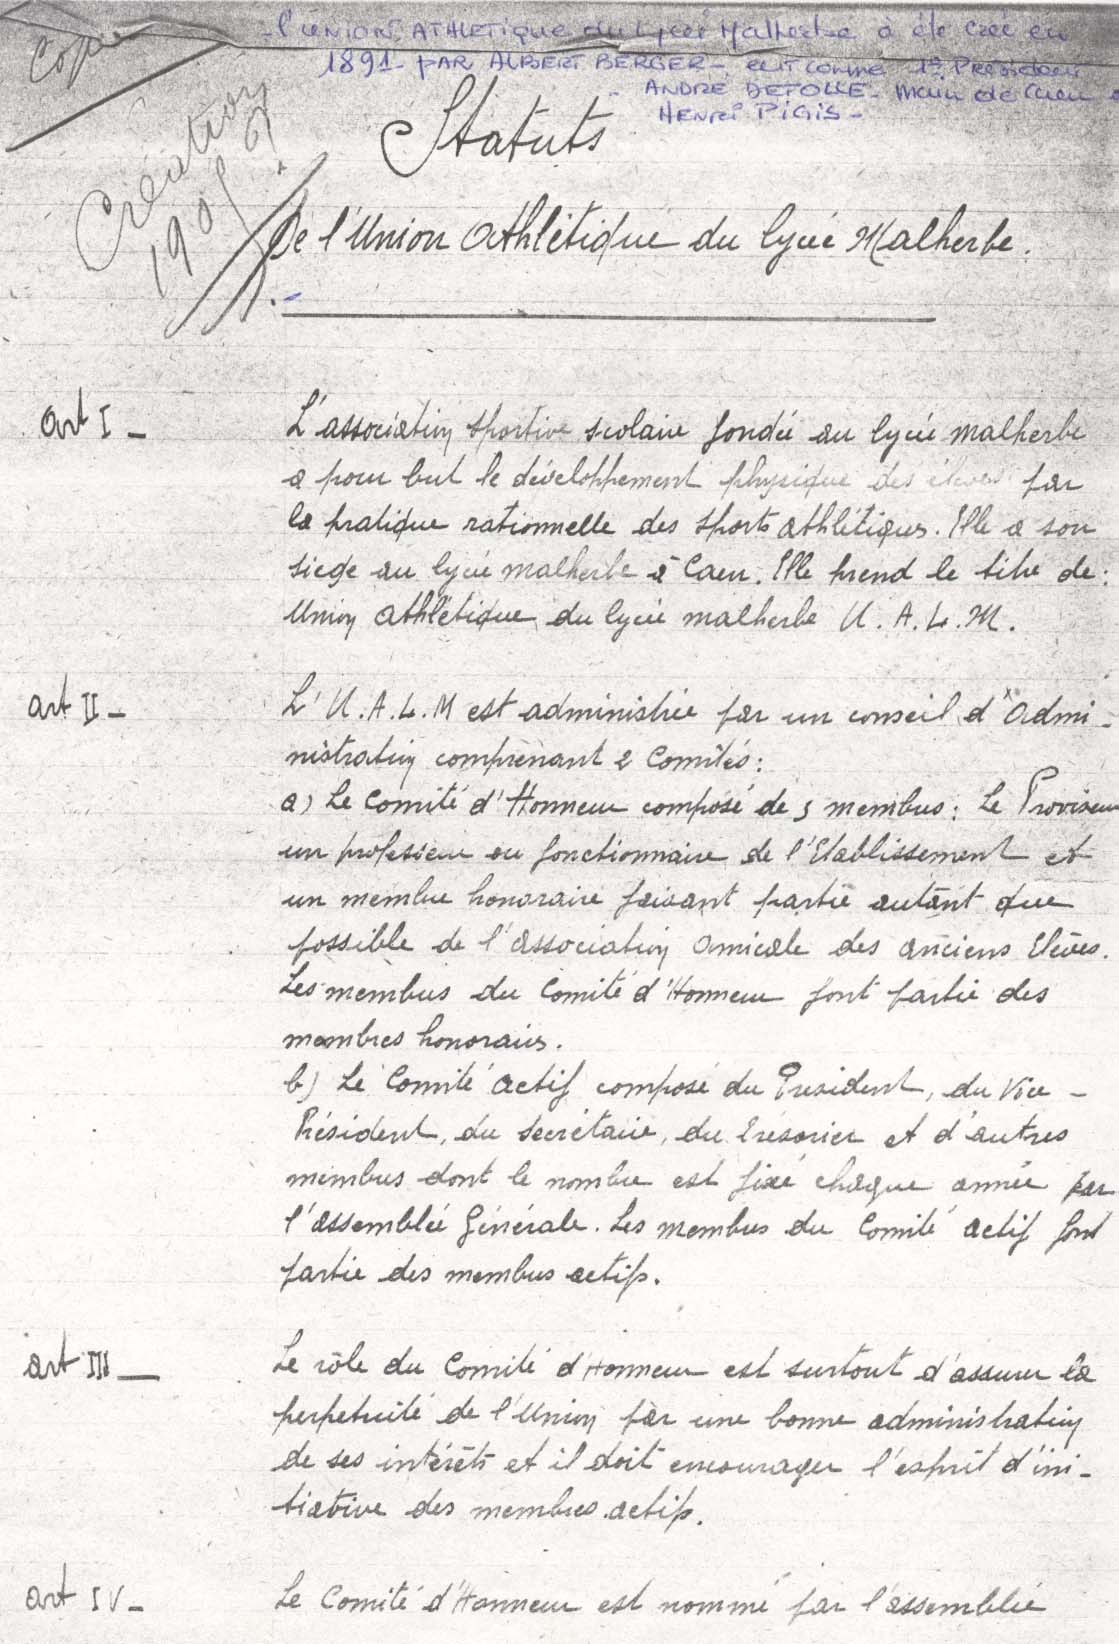 Copie
l'UNION ATHLETIQUE du Lycée Malherbe a été créé en
1891 - PAR ALBERT BERGER - eut comme 1er Président
- ANDRÉ DETOLLE - Maire de Caen
HENRI PIGIS -
Création
190
Statuts
De l'Union Athlétique du lycée Malherbe.
art I -
L'association sportive scolaire fondée au lycée malherbe
a pour but le développement physique des élèves par
la pratique rationnelle des sports athlétiques. Elle a son
siège au lycée malherbe à Caen. Elle prend le titre de :
Union athlétique du lycée malherbe U. A. L. M.
art II -
L' U. A. L. M est administrée par un conseil d'Admi-
nistration comprenant 2 Comités :
a) Le Comité d'Honneur composé de 3 membres : Le Proviseur
un professeur ou fonctionnaire de l'Etablissement et
un membre honoraire faisant partie autant que
possible de l'association Amicale des anciens Elèves.
Les membres du Comité d'Honneur font partie des
membres honoraires.
b) Le Comité actif composé du Président, du Vice -
Président, du Secrétaire, du Trésorier et d'autres
membres dont le nombre est fixé chaque année par
l'assemblée Générale. Les membres du Comité actif font
partie des membres actifs.
art III -
Le rôle du Comité d'Honneur est surtout d'assurer la
perpétuité de l'Union par une bonne administration
de ses intérêts et il doit encourager l'esprit d'ini-
tiative des membres actifs.
art IV -
Le Comité d'Honneur est nommé par l'assemblée